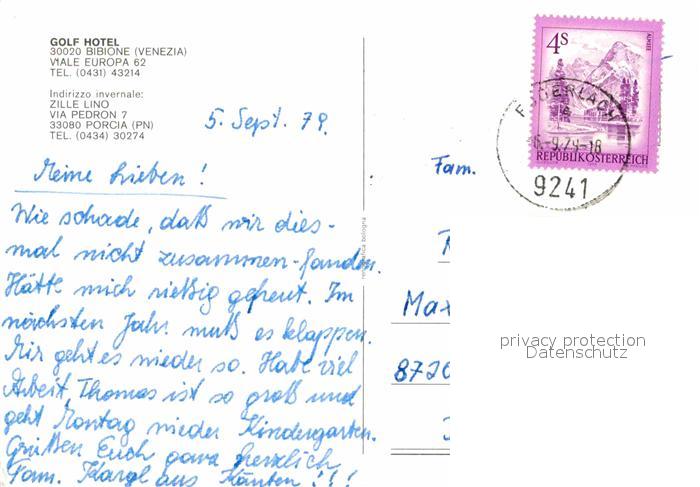 GOLF HOTEL
30020 BIBIONE (VENEZIA)
VIALE EUROPA 62
TEL. (0431) 43214
Indirizzo invernale:
ZILLE LINO
VIA PEDRON 7
33080 PORCIA (PN)
TEL. (0434) 30274
5. Sept. 79.
Meine Lieben!
Wie schade, daß wir dies-
mal nicht zusammen-fanden.
Hätte mich rießig gefreut. Im
nächsten Jahr muß es klappen.
Mir geht es wieder so. Habe viel
Arbeit, Thomas ist so groß und
geht Montag wieder Kindergarten.
Grüßen Euch ganz herzlich
Fam. Kargl aus Kärnten!!!
bologna
4S
ALMSEE
REPUBLIK ÖSTERREICH
-9.79-18
9241
Fam.
Max
8720
privacy protection
Datenschutz